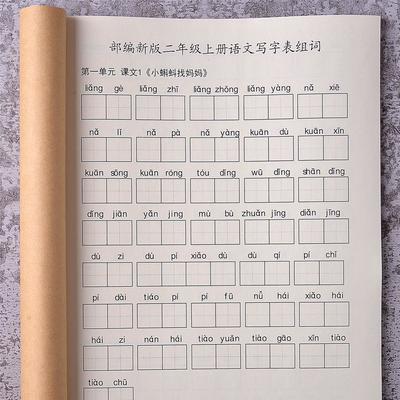 部编新版二年级上册语文写字表组词
第一单元 课文1《小蝌蚪找妈妈》
liǎng gè liǎng zhī liǎng zhǒng liǎng yàng nǎ xiē
nǎ lǐ nǎ pà nǎ yàng kuān dù kuān xīn
kuān sōng kuān róng tóu dǐng wū dǐng shān dǐng
dǐng jiān yǎn jing mù bù zhuǎn jīng diǎn jīng
dù zi dù pí xiǎo dù dù qí pí chǐ
pí dài tiáo pí pí fū nǚ hái xiǎo hái
hái zi nán hái tiào yuǎn tiào gāo xīn tiào
tiào chū